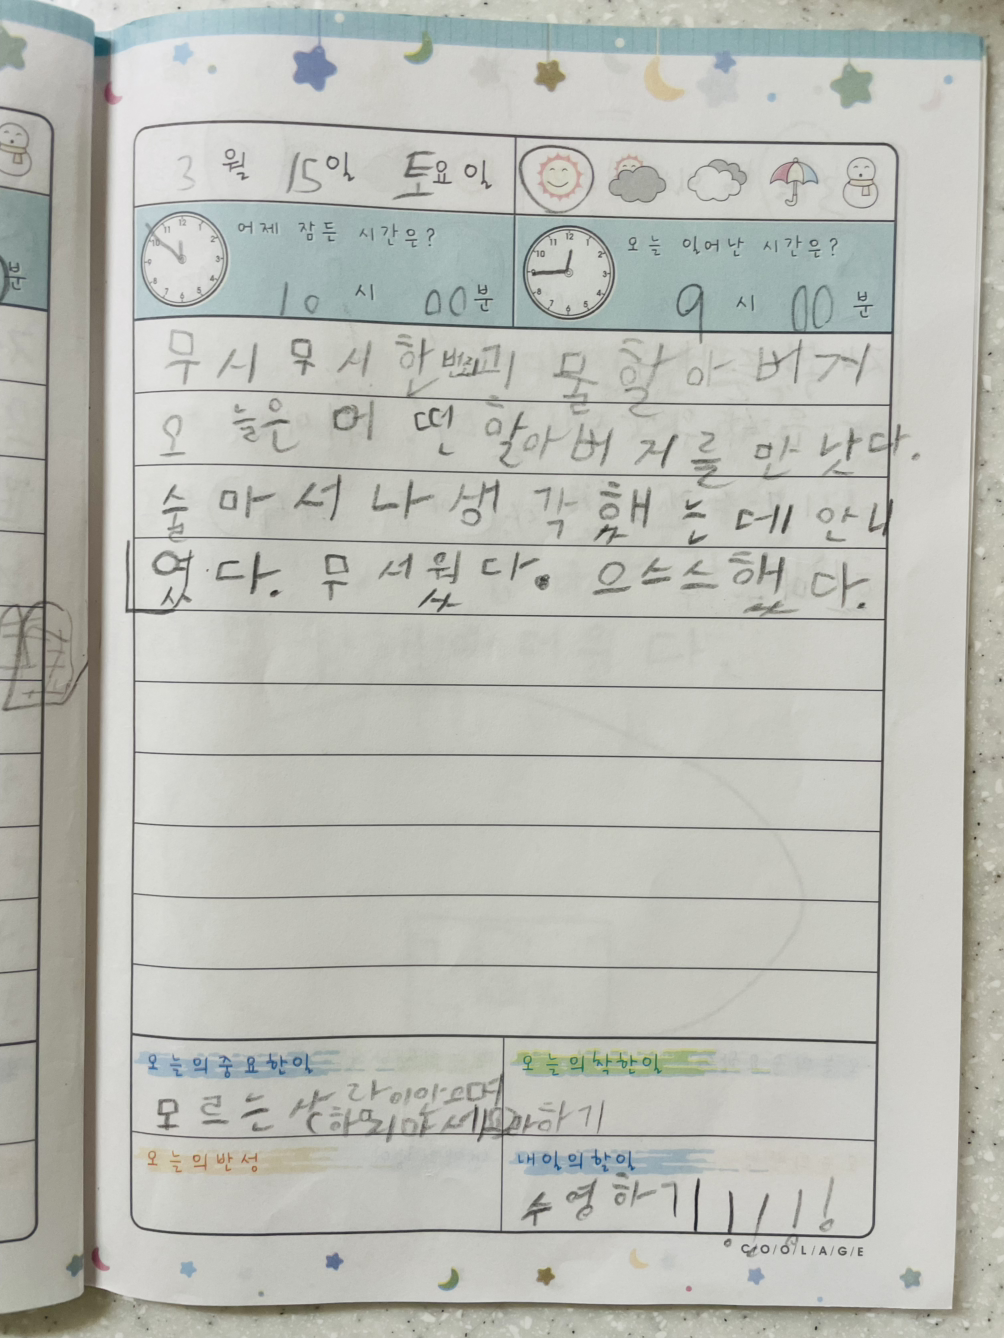 3월 15일 토요일
어제 잠든 시간은?
10시 00분
오늘 일어난 시간은?
9시 00분
무시무시한 할아버지
오늘은 어떤 할아버지를 만낫다.
술마서나 생각했는데 안니
였다. 무서웠다. 으스스했다.
오늘의 중요한일
모르는 사
오늘의 착한일
하기
오늘의 반성
내일의 할일
수영하기!!!!!
C/O/O/L/A/G/E
분